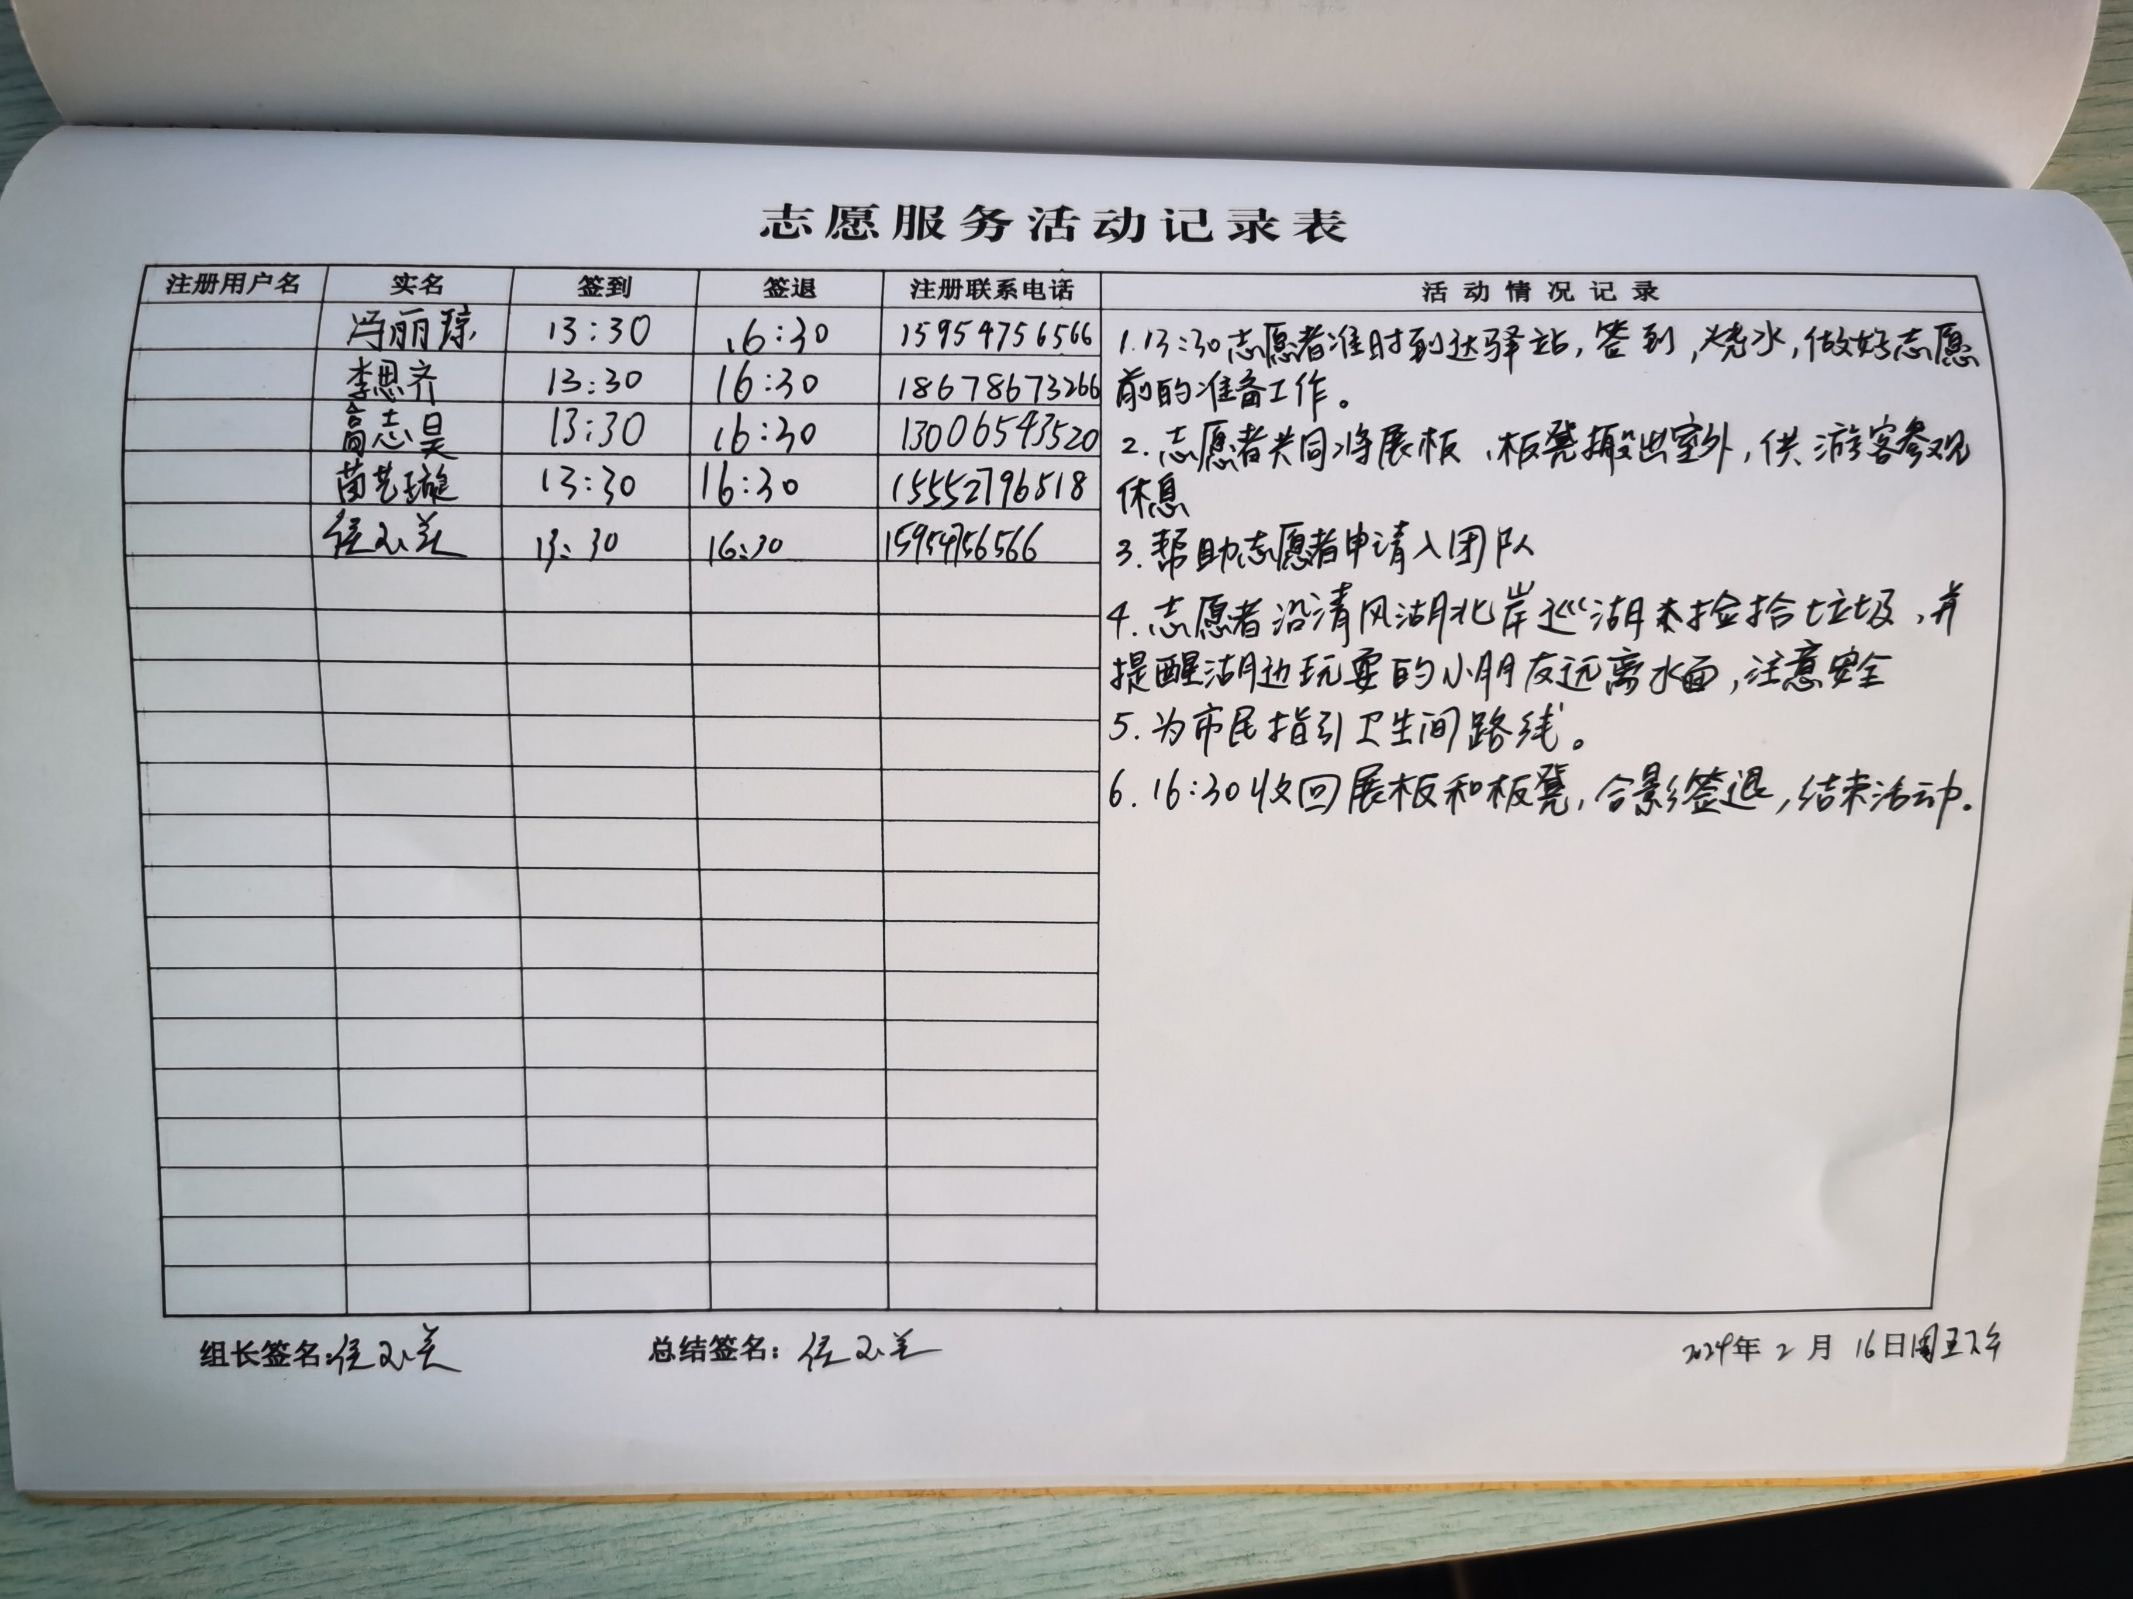 志愿服务活动记录表
注册用户名 实名 签到 签退 注册联系电话 活动情况记录
冯丽琼 13:30 16:30 15954756566
李思齐 13:30 16:30 18678673266
高志昊 13:30 16:30 13006543520
苗艺璇 13:30 16:30 15552796518
13:30 16:30 15954756566
1.13:30志愿者准时到达驿站,签到,烧水,做好志愿
前的准备工作。
2.志愿者共同将展板、板凳搬出室外,供游客参观
休息
3.帮助志愿者申请入团队
4.志愿者沿清风湖北岸巡湖来捡拾垃圾,并
提醒湖边玩耍的小朋友远离水面,注意安全
5.为市民指引卫生间路线。
6.16:30收回展板和板凳,合影签退,结束活动。
组长签名: 总结签名: 2024年2月16日周五下午